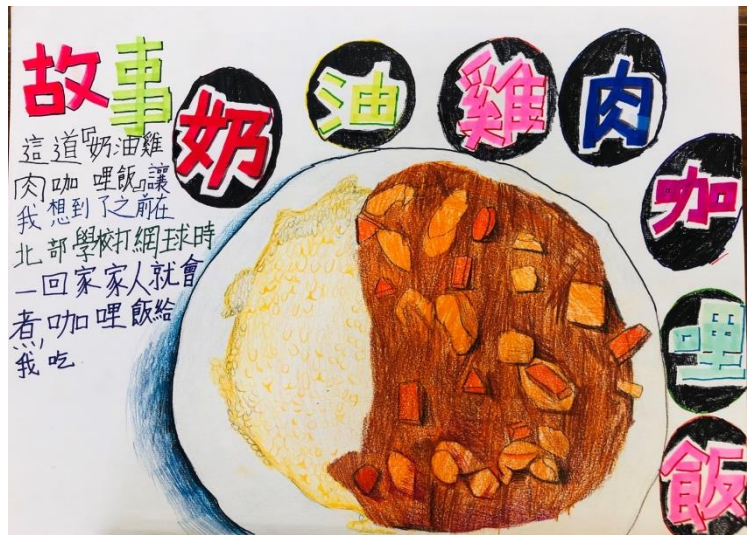 故事
奶油雞肉咖哩飯
這道『奶油雞
肉咖哩飯』讓
我想到了之前在
北部學校打網球時
一回家家人就會
煮咖哩飯給
我吃